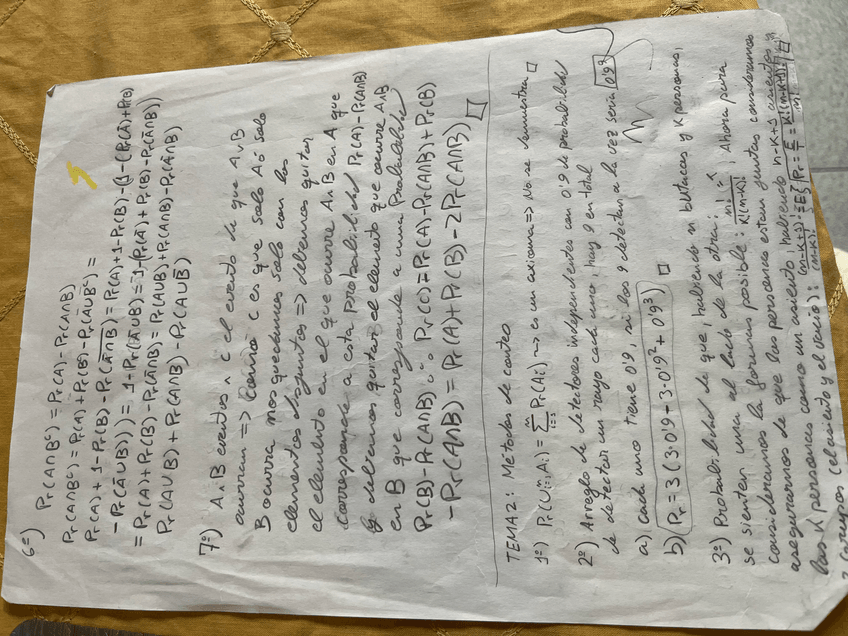 6º) Pr(A∩Bᶜ) = Pr(A) - Pr(A∩B)
Pr(A∩Bᶜ) = Pr(A) + Pr(B) - Pr(A̅∪Bᶜ) =
Pr(A) + 1 - Pr(B) - Pr(A̅∩B) = Pr(A) + 1 - Pr(B) - (1 - (Pr(A̅) + Pr(B)
- Pr(A̅∪B))) = 1 + Pr(A̅∪B) = 1 - Pr(A̅) + Pr(B) - Pr(A̅∩B))
= Pr(A) + Pr(B) - Pr(A̅∩B) = Pr(A∪B) + Pr(A∩B) - Pr(A̅∩B)
Pr(A∪B) + Pr(A∩B) - Pr(A∪B̅)
7º) A ∧ B eventos ∧ C el evento de que A ∨ B
ocurran => Como C es que solo A ó solo
B ocurra nos quedamos solo con los
elementos disjuntos => debemos quitar
el elemento en el que ocurre A∧B en A que
corresponde a esta probabilidad Pr(A) - Pr(A∩B)
y debemos quitar el elemento que ocurre A∧B
en B que corresponde a una probabilidad
Pr(B) - Pr(A∩B) ∴ Pr(C) = Pr(A) - Pr(A∩B) + Pr(B)
- Pr(A∩B) = Pr(A) + Pr(B) - 2Pr(A∩B) □
TEMA 2: Métodos de conteo
1º) Pr(∪ⁿᵢ₌₁Aᵢ) = Σⁿᵢ₌₁ Pr(Aᵢ) => es un axioma => No se demuestra □
2º) Arreglo de detectores independientes con 0'9 de probabilidad
de detectar un rayo cada uno, hay 9 en total
a) cada uno tiene 0'9, si los 9 detectan a la vez sería 0'9⁹
b) Pr = 3(3·0'9 - 3·0'9² + 0'9³) □
3º) Probabilidad de que, habiendo n butacas y k personas,
se sienten una al lado de la otra:
consideramos la formas posible: n!/k!(n-k)! = x; Ahora para
asegurarnos de que las personas estan juntas consideramos
las k personas como un asiento, habiendo n-k+1 asientos y
2 campos (el asiento y el vacio): (n-k+1)!/(n-k)! = E